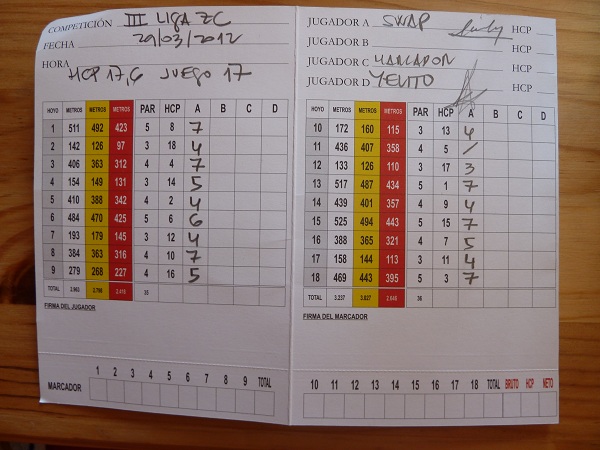 COMPETICIÓN III LIGA ZC
FECHA 29/03/2012
HORA
HCP 17,6 JUEGO 17
HOYO METROS METROS METROS PAR HCP A B C D
1 511 492 423 5 8 7
2 142 126 97 3 18 4
3 406 363 312 4 4 7
4 154 149 131 3 14 5
5 410 388 342 4 2 4
6 484 470 425 5 6 6
7 193 179 145 3 12 4
8 384 363 316 4 10 7
9 279 268 227 4 16 5
TOTAL 2.963 2.798 2.418
FIRMA DEL JUGADOR
1 2 3 4 5 6 7 8 9 TOTAL
MARCADOR
JUGADOR A SWAP HCP
JUGADOR B HCP
JUGADOR C MARCADOR HCP
JUGADOR D YELITO HCP
HOYO METROS METROS METROS PAR HCP A B C D
10 172 160 115 3 13 4
11 436 407 358 4 5 /
12 133 126 110 3 17 3
13 517 487 434 5 1 7
14 439 401 357 4 9 4
15 525 494 443 5 15 7
16 388 365 321 4 7 5
17 158 144 113 3 11 4
18 469 443 395 5 3 7
TOTAL 3.237 3.027 2.646 36
FIRMA DEL MARCADOR
10 11 12 13 14 15 16 17 18 TOTAL BRUTO HCP NETO